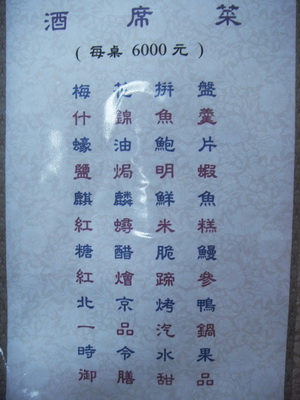 酒席菜
(每桌 6000 元)
梅花拼盤
什錦魚羹
蠔油鮑片
鹽焗明蝦
麒麟鮮魚
紅蟳米糕
糖醋脆鰻
紅燴蹄參
北京烤鴨
一品汽鍋
時令水果
御膳甜品